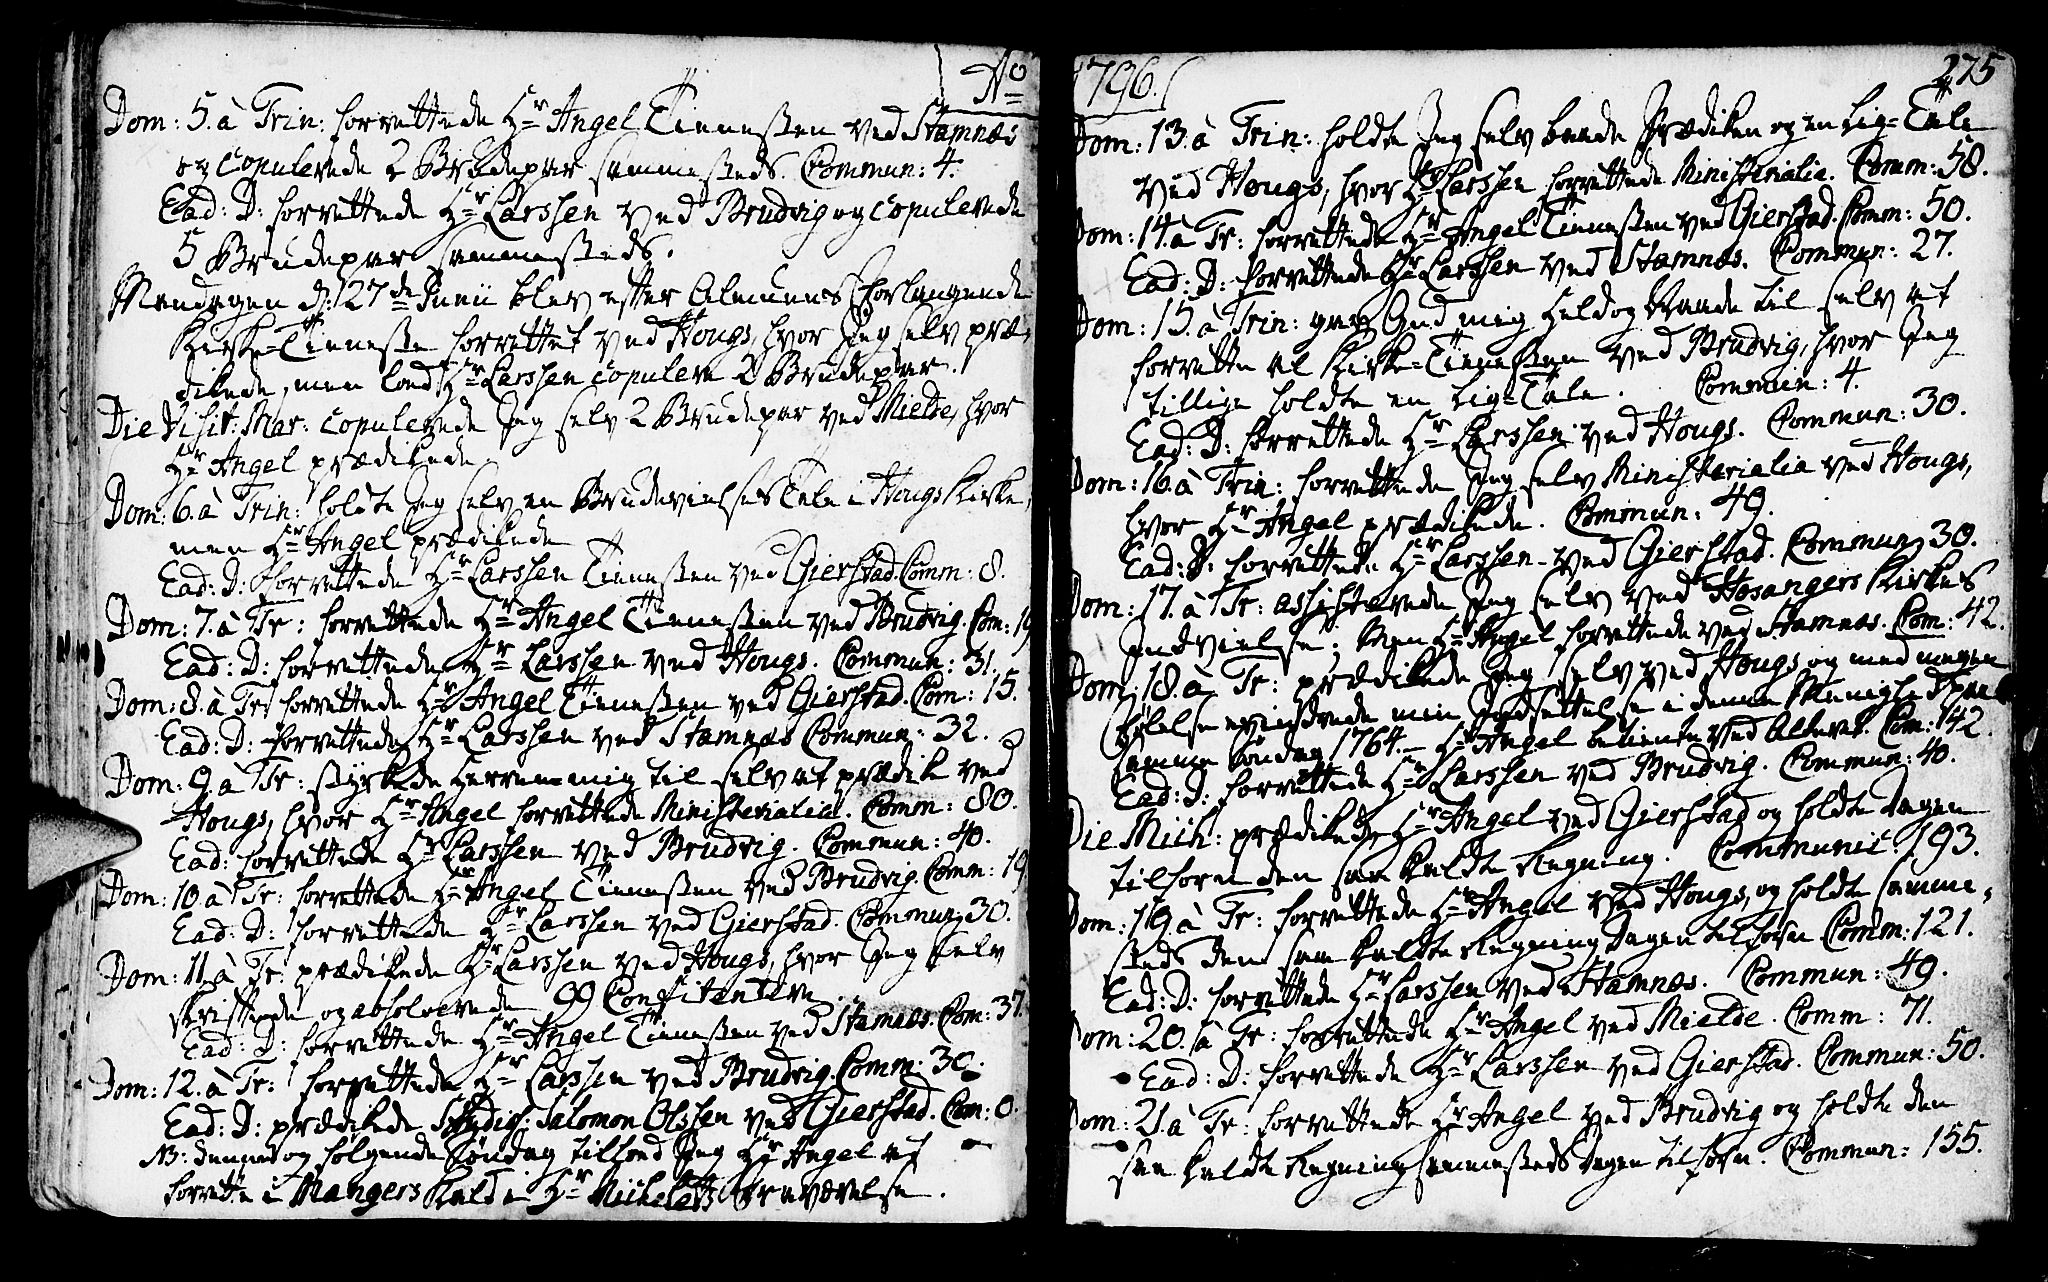 Ao
Dom: 5. à Trin: forrettede Hr Angel Tienesten ved Stamnæs
og copulerede 2 Brudepar sammesteds. Commun: 4.
Ead: D: forrettede Hr Larssen ved Brudvig og copulerede
5 Brudepar sammesteds.
Mandagen d: 27de Junii blev efter Almuens Forlangende
Kirke-Tieneste forrettet ved Hougs, hvor Jeg selv præ-
dikede, men lod Hr Larssen copulere 2 Brudepar.
Die Visit: Mar: copulerede Jeg selv 2 Brudepar ved Mielde, hvor
Hr Angel prædikede.
Dom: 6. à Trin: holdte Jeg selv en Brudevielses Tale i Hougs Kirke,
men Hr Angel prædikede
Ead: D: forrettede Hr Larssen Tienesten ved Gierstad. Comm: 8.
Dom: 7. à Tr: forrettede Hr Angel Tienesten ved Brudvig. Com: 19
Ead: D: forrettede Hr Larssen ved Hougs. Commun: 31.
Dom: 8. à Tr: forrettede Hr Angel Tienesten ved Gierstad. Com: 15.
Ead: D: forrettede Hr Larssen ved Stamnæs Commun: 32.
Dom: 9. à Tr: styrkede Herren mig til selv at prædike ved
Hougs, hvor Hr Angel forrettede Ministerialia. Comm: 80.
Ead: forrettede Hr Larssen ved Brudvig. Commun: 40.
Dom: 10. à Tr: forrettede Hr Angel Tienesten ved Brudvig. Comm: 19
Ead: D: forrettede Hr Larssen ved Gierstad. Commun: 30.
Dom: 11. à Tr: prædikede Hr Larssen ved Hougs, hvor Jeg selv
skriftede og absolverede 99 Confitentere.
Ead: D: forrettede Hr Angel Tienesten ved Stamnæs. Com: 37.
Dom: 12. à Tr: forrettede Hr Larssen ved Brudvig. Comm: 30.
Ead: D: prædikede Studios: Salomon Olssen ved Gierstad. Com: 0.
NB: denne og følgende Søndag tillod Jeg Hr Angel at
forrette i Mangers Kald i Hr Fraværelse.
1796.
275
Dom: 13. à Trin: holdte Jeg selv baade Prædiken og en Lig-Tale
ved Hougs, hvor Hr Larssen forrettede Ministerialia. Comm: 58.
Dom: 14. à Tr: forrettede Hr Angel Tienesten ved Gierstad. Comm: 50.
Ead: D: forrettede Hr Larssen ved Stamnæs. Commun: 27.
Dom: 15. à Trin: gav Gud mig Held og Naade til selv at
forrette al Kirke-Tienesten ved Brudvig, hvor Jeg
tillige holdte en Lig-Tale. Commun: 4.
Ead: D: forrettede Hr Larssen ved Hougs. Commun: 30.
Dom: 16. à Trin: forrettede Jeg selv Ministerialia ved Hougs,
hvor Hr Angel prædikede. Commun: 49.
Ead: D: forrettede Hr Larssen ved Gierstad. Commun: 30.
Dom: 17. à Tr: assisterede Jeg selv ved Hosangers Kirkes
Indvielse; Men Hr Angel forrettede ved Stamnæs. Com: 42.
Dom: 18. à Tr: prædikede Jeg selv ved Hougs og med megen
Følelse erindrede min Indsettelse i denne Menighed paa
samme Søndag 1764. – Hr Angel betiente ved Alteret. Com: 142.
Ead: D: forrettede Hr Larssen ved Brudvig. Commun: 40.
Die Mich: prædikede Hr Angel ved Gierstad og holdte Dagen
tilforn den saa kaldte Regning. Communic: 193.
Dom: 19. à Tr: forrettede Hr Angel ved Hougs, og holdte samme-
steds den saa kaldte Regning Dagen tilforn Comm: 121.
Ead: D: forrettede Hr Larssen ved Stamnæs. Commun: 49.
Dom: 20. à Tr: forrettede Hr Angel ved Mielde. Comm: 71.
Ead: D: forrettede Hr Larssen ved Gierstad. Commun: 50.
Dom: 21. à Tr: forrettede Hr Angel ved Brudvig og holdte den
saa kaldte Regning sammesteds Dagen tilforn. Commun: 155.